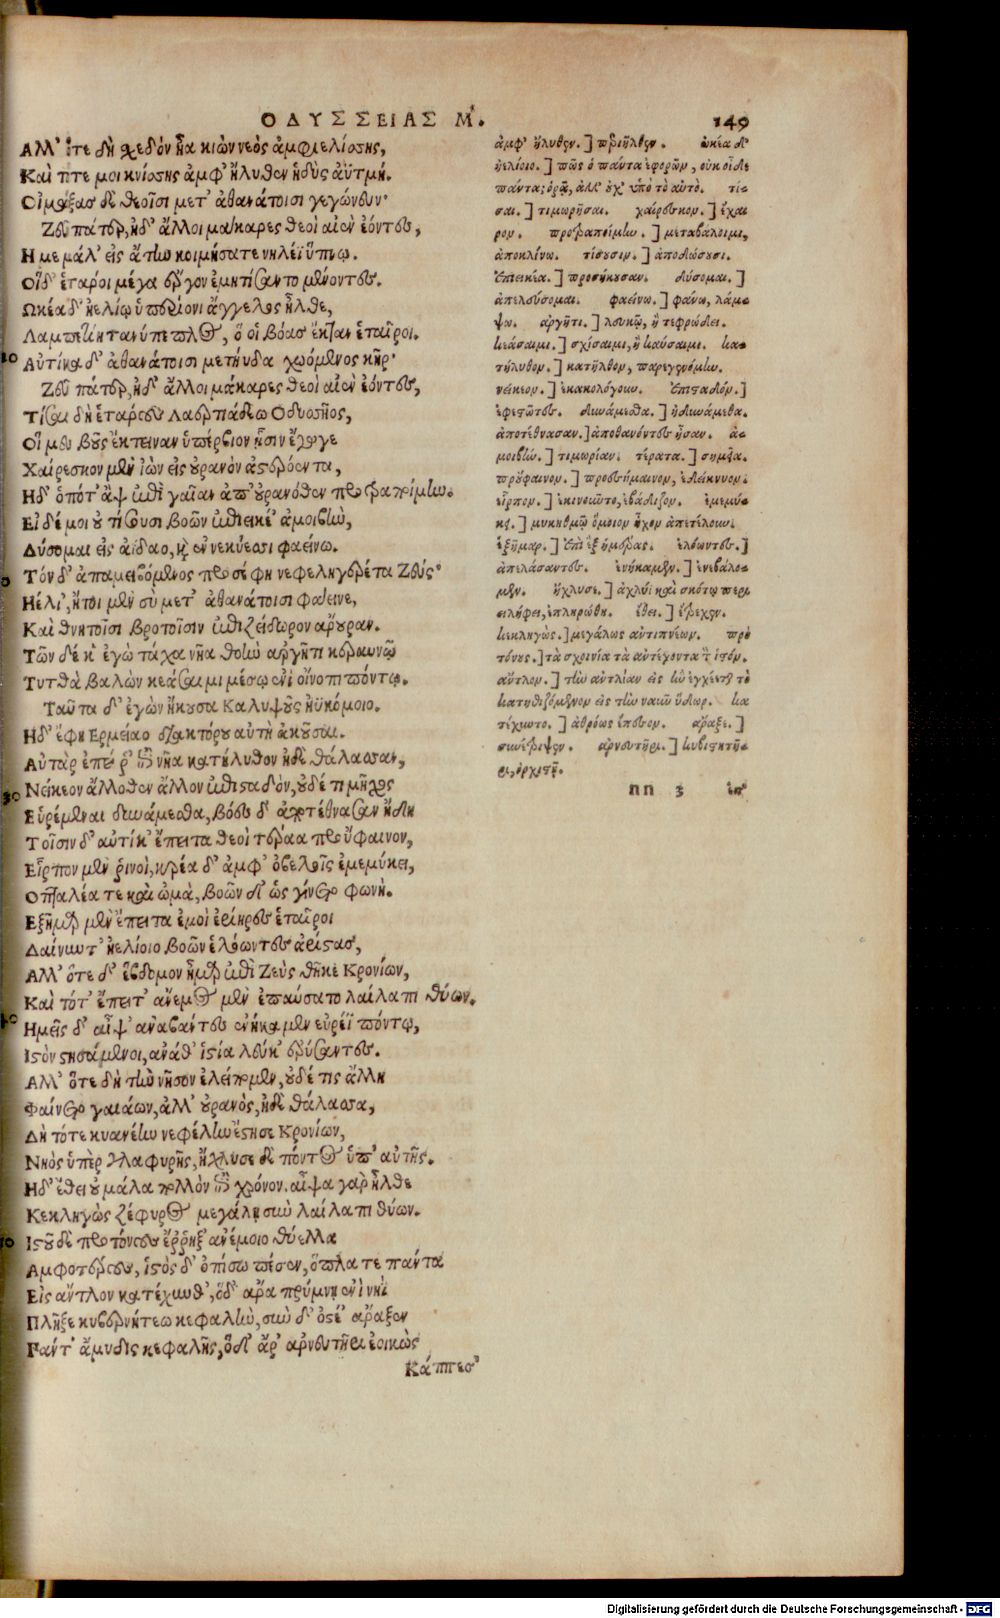 ΟΔΥΣΣΕΙΑΣ Μ.
149
Αλλ' ὅτε δὴ σχεδόν ἦα κιὼν νεὸς ἀμφιελίσσης,
Καὶ τότε μοι κνίσσης ἀμφ' ἤλυθεν ἡδὺς ἀϋτμή.
Οἰμώξας δὲ θεοῖσι μετ' ἀθανάτοισι γεγώνευν·
Ζεῦ πάτερ, ἠδ' ἄλλοι μάκαρες θεοὶ αἰὲν ἐόντες,
Η με μάλ' εἰς ἄτην κοιμήσατε νηλέϊ ὕπνῳ.
Οἵδ' ἕταροι μέγα ἔργον ἐμητίσαντο μένοντες.
Ωκέα δ' ἠελίῳ ὑπερίονι ἄγγελος ἦλθε,
Λαμπετίη τανύπεπλος, ὅ οἱ βόας ἔκταν ἑταῖροι.
Αὐτίκα δ' ἀθανάτοισι μετηύδα χωόμενος κῆρ·
Ζεῦ πάτερ, ἠδ' ἄλλοι μάκαρες θεοὶ αἰὲν ἐόντες,
Τίσαι δὴ ἑτάρους Λαερτιάδεω Οδυσῆος,
Οἵ μευ βοῦς ἔκτειναν ὑπέρβιον ᾗσιν ἔγωγε
Χαίρεσκον μὲν ἰὼν εἰς οὐρανὸν ἀστερόεντα,
Ηδ' ὁπότ' ἂψ ἐπὶ γαῖαν ἀπ' οὐρανόθεν προτραποίμην.
Εἰ δέ μοι οὐ τίσουσι βοῶν ἐπιεικέ' ἀμοιβὴν,
Δύσομαι εἰς ἀΐδαο, καὶ ἐν νεκύεσσι φαείνω.
Τόν δ' ἀπαμειβόμενος προσέφη νεφεληγερέτα Ζεύς·
Ηέλι', ἤτοι μὲν σὺ μετ' ἀθανάτοισι φάεινε,
Καὶ θνητοῖσι βροτοῖσιν ἐπὶ ζείδωρον ἄρουραν.
Τῶν δέ κ' ἐγὼ τάχα νῆα θοὴν ἀργῆτι κεραυνῷ
Τυτθὰ βαλὼν κεάσαιμι μέσῳ ἐνὶ οἴνοπι πόντῳ.
Ταῦτα δ' ἐγὼν ἤκουσα Καλυψοῦς ἠϋκόμοιο.
Ηδ' ἔφη Ερμείαο διακτόρου αὐτὴ ἀκοῦσαι.
Αὐτὰρ ἐπεί ῥ' ἐπὶ νῆα κατήλυθον ἠδὲ θάλασσαν,
Νείκεον ἄλλοθεν ἄλλον ἐπισταδὸν, οὐδέ τι μῆχος
Εὑρέμεναι δυνάμεσθα, βόες δ' ἀποτέθνασαν ἤδη
Τοῖσιν δ' αὐτίκ' ἔπειτα θεοὶ τέραα προὔφαινον,
Εἷρπον μὲν ῥινοὶ, κρέα δ' ἀμφ' ὀβελοῖς ἐμεμύκει,
Οπταλέα τε καὶ ὠμὰ, βοῶν δ' ὡς γίνετο φωνή.
Εξῆμαρ μὲν ἔπειτα ἐμοὶ ἐρίηρες ἑταῖροι
Δαίνυντ' ἠελίοιο βοῶν ἐλόωντες ἀρίστας,
Αλλ' ὅτε δ' ἕβδομον ἦμαρ ἐπὶ Ζεὺς θῆκε Κρονίων,
Καὶ τότ' ἔπειτ' ἄνεμος μὲν ἐπαύσατο λαίλαπι θύων.
Ημεῖς δ' αἶψ' ἀναβάντες ἐνήκαμεν εὐρέϊ πόντῳ,
Ιστὸν στησάμενοι, ἀνάθ' ἱστία λεύκ' ἐρύσαντες.
Αλλ' ὅτε δὴ τὴν νῆσον ἐλείπομεν, οὐδέ τις ἄλλη
Φαίνετο γαιάων, ἀλλ' οὐρανὸς, ἠδὲ θάλασσα,
Δὴ τότε κυανέην νεφέλην ἔστησε Κρονίων,
Νηὸς ὑπὲρ γλαφυρῆς, ἤχλυσε δὲ πόντος ὑπ' αὐτῆς.
Ηδ' ἔθει οὐ μάλα πολλὸν ἐπὶ χρόνον. αἶψα γὰρ ἦλθε
Κεκληγὼς ζέφυρος μεγάλῃ σὺν λαίλαπι θύων.
Ιστοῦ δὲ προτόνους ἔρρηξ' ἀνέμοιο θύελλα
Αμφοτέρους, ἱστὸς δ' ὀπίσω πέσεν, ὅπλα τε πάντα
Εἰς ἄντλον κατέχυνθ', ὅδ' ἄρα πρύμνῃ ἐνὶ νηῒ
Πλῆξε κυβερνήτεω κεφαλὴν, σὺν δ' ὀστέ' ἄραξεν
Πάντ' ἄμυδις κεφαλῆς, ὅδ' ἄρ' ἀρνευτῆρι ἐοικὼς
Κάππεσ'
ἀμφ' ἤλυθεν.] περιῆλθεν. ὠκέα δ'
ἠελίοιο.] πῶς ὁ πάντα ἐφορῶν, οὐκ οἶδε
πάντα; ὁρᾷ, ἀλλ' οὐχ' ὑπὸ τὸ αὐτό. τί-
σαι.] τιμωρῆσαι. χαίρεσκον.] ἔχαι
ρον. προτραποίμην.] μεταβάλοιμι,
ἀποκλίνω. τίσουσιν.] ἀποδώσουσι.
ἐπιεικέα.] προσήκουσαν. δύσομαι.]
ἀπελεύσομαι. φαείνω.] φανῶ, λάμ-
ψω. ἀργῆτι.] λευκῷ, ἢ τεφρώδει.
κεάσαιμι.] σχίσαιμι, ἢ καύσαιμι. κα-
τήλυθον.] κατῆλθον, παρεγενόμην.
νείκεον.] ἐκακολόγουν. ἐπισταδόν.]
ἐφεστῶτες. δυνάμεσθα.] ἠδυνάμεθα.
ἀποτέθνασαν.] ἀποθανόντες ἦσαν. ἀ-
μοιβήν.] τιμωρίαν. τέρατα.] σημεῖα.
προὔφαινον.] προεσήμαινον, ἐδείκνυον.
εἷρπον.] ἐκινοῦντο, ἐβάδιζον. ἐμεμύ-
κει.] μυκηθμῷ ὅμοιον ἦχον ἀπετέλουν.
ἑξῆμαρ.] ἐπὶ ἓξ ἡμέρας. ἐλόωντες.]
ἀπελάσαντες. ἐνήκαμεν.] ἐνεβάλο-
μεν. ἤχλυσε.] ἀχλύϊ καὶ σκότῳ περι
ειλήφει, ἐπληρώθη. ἔθει.] ἔτρεχεν.
κεκληγὼς.] μεγάλως ἀντιπνέων. προ
τόνους.] τὰ σχοινία τὰ ἀντέχοντα τὸν ἱστόν.
ἄντλον.] τὴν ἀντλίαν εἰς ἣν ἐγχεῖται τὸ
κατηθιζόμενον εἰς τὴν ναῦν ὕδωρ. κα
τέχυντο.] ἀθρόως ἔπεσον. ἄραξε.]
συνέτριψεν. ἀρνευτῆρι.] κυβιστητῆ-
ρι, ὀρχηστῇ.
nn 3